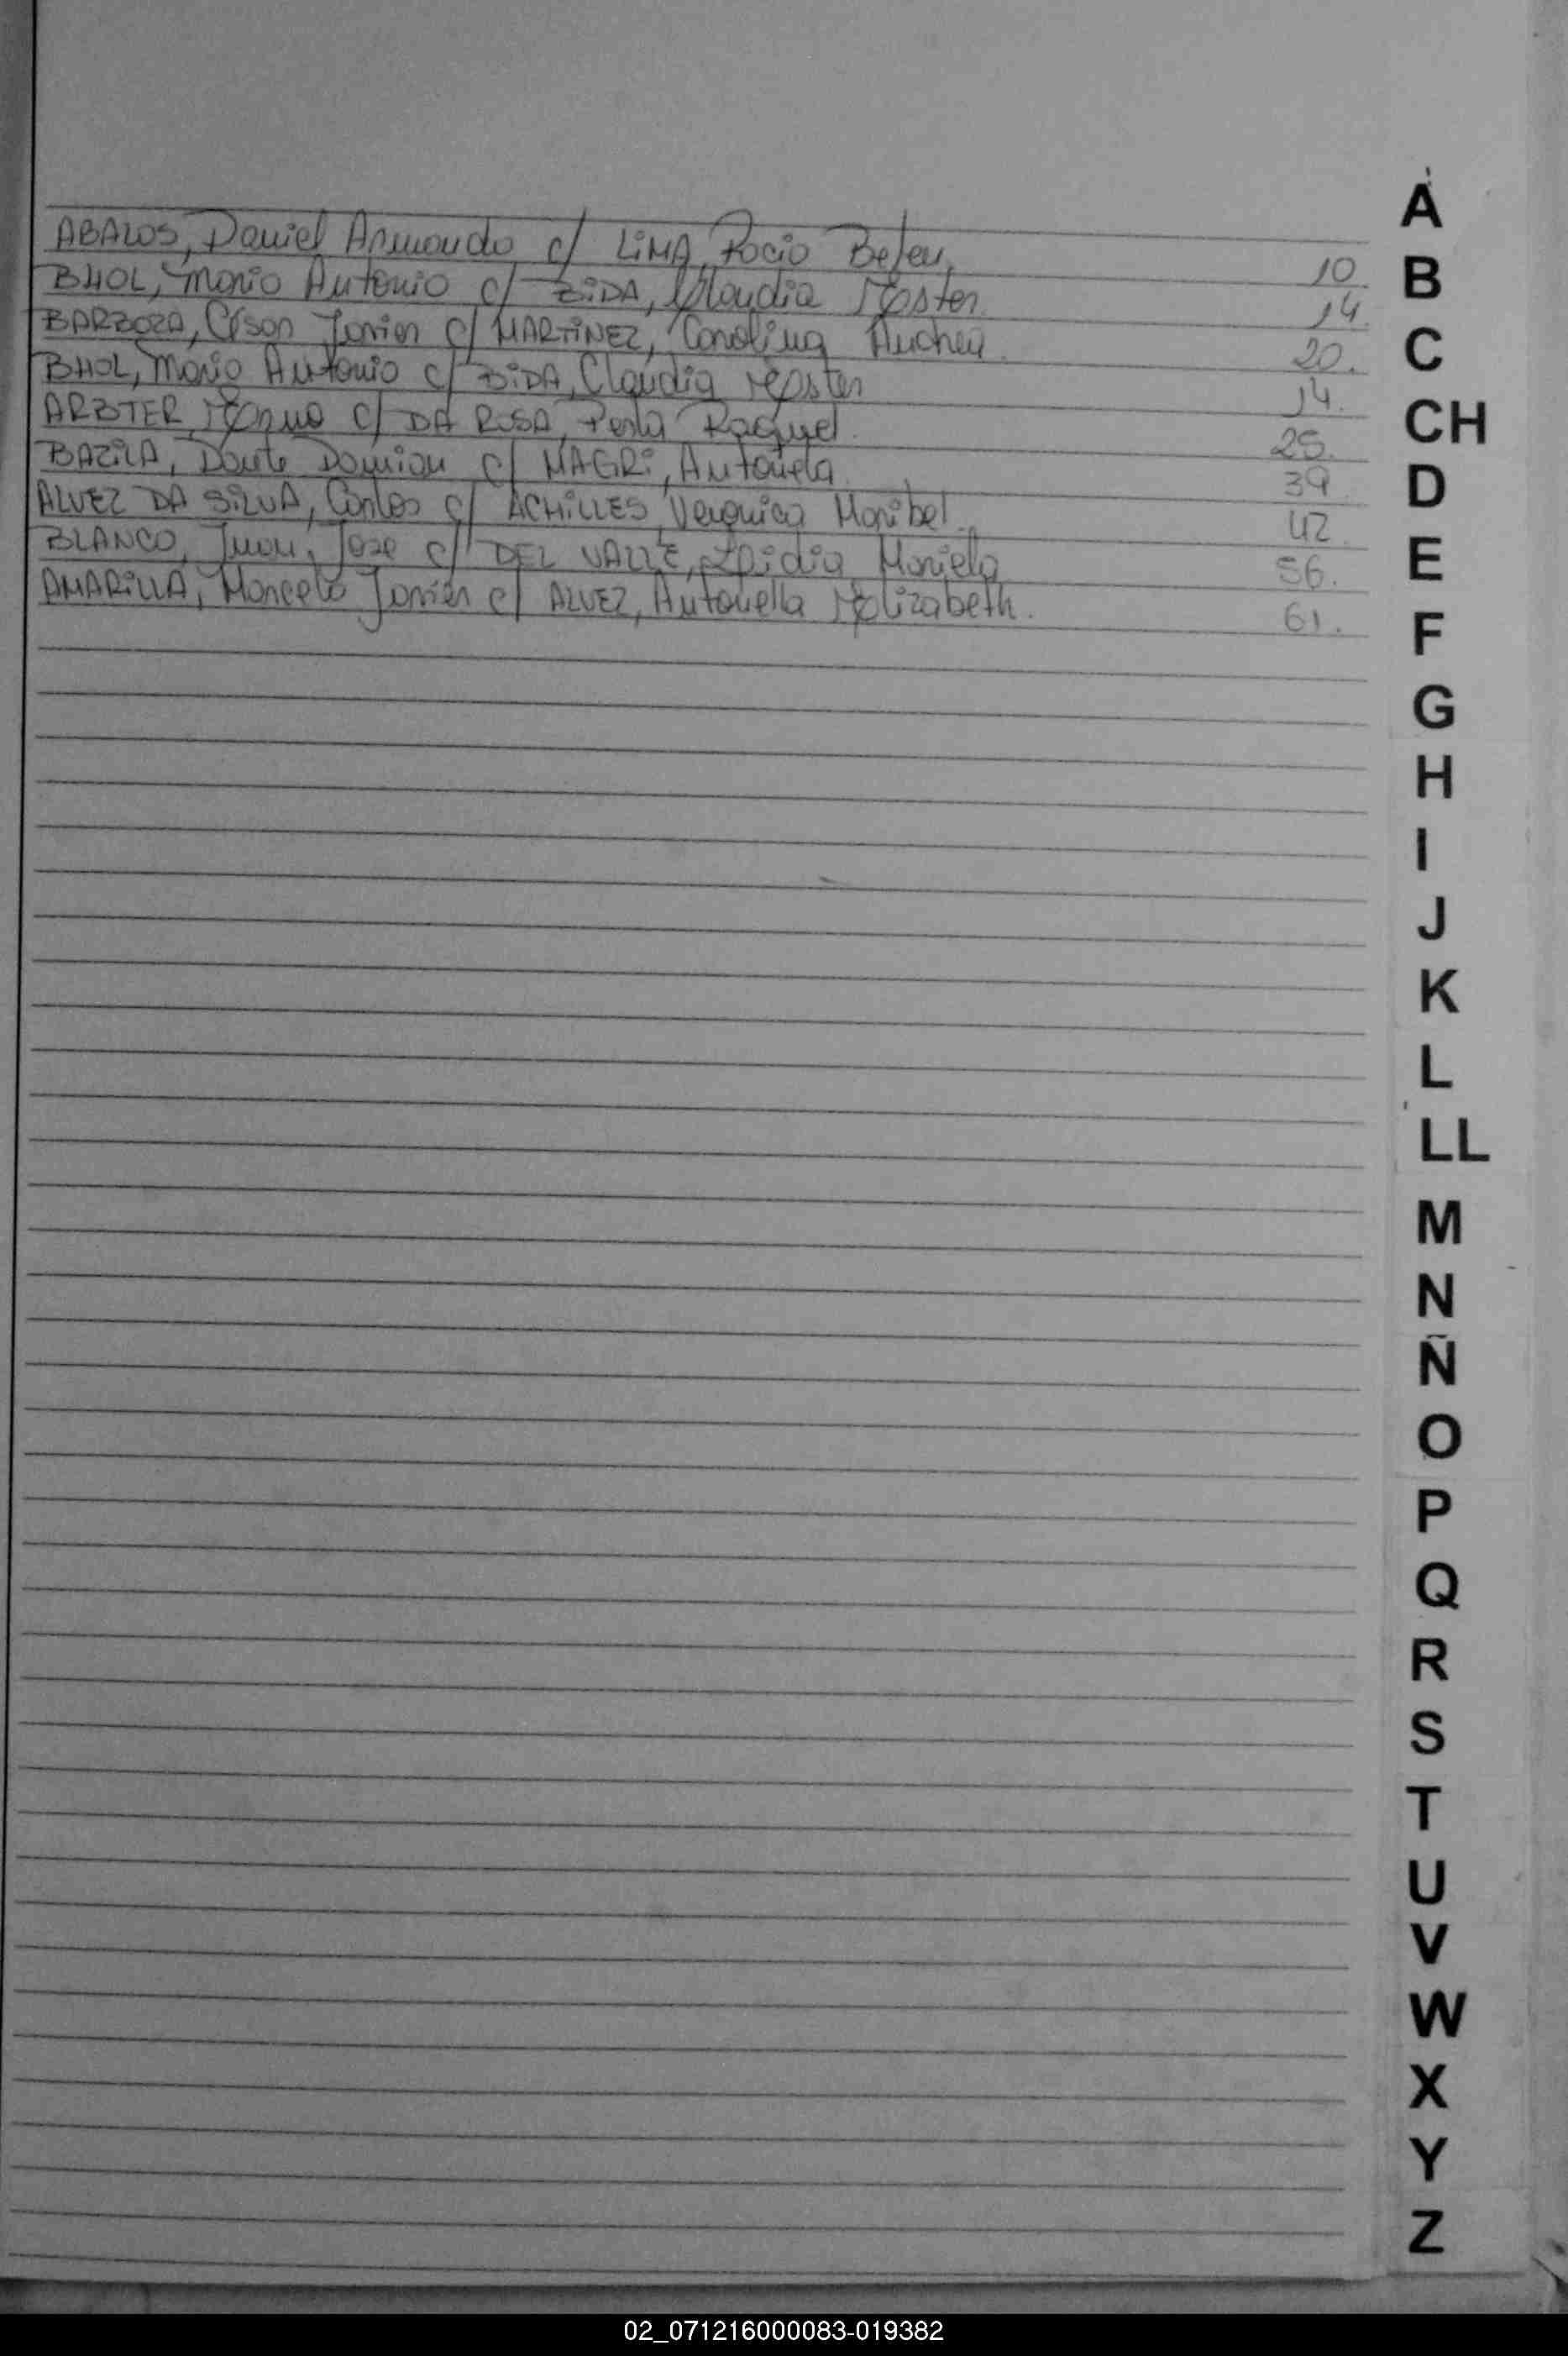 ABALOS, Daniel Armando c/ LiMA, Rocio Belen. 10.
BHOL, Mario Antonio c/ ZiDA, Claudia Ester. 14.
BARBOZA, Javier c/ MARTiNEZ, Carolina 20.
BHOL, Mario Antonio c/ ZiDA, Claudia Ester 14.
ARBTER, c/ DA ROSA, Perla Raquel. 25.
BAZiLA, Dante Damian c/ MAGRi, Antonela. 39.
ALVEZ DA SiLVA, Carlos c/ ACHiLLES, Veronica Maribel. 42.
BLANCO, Juan, Jose c/ DEL VALLE, Lidia Mariela 56.
AMARiLLA, Marcelo Javier c/ ALVEZ, Antonella Elizabeth. 61.
A
B
C
CH
D
E
F
G
H
I
J
K
L
LL
M
N
Ñ
O
P
Q
R
S
T
U
V
W
X
Y
Z
02_071216000083-019382